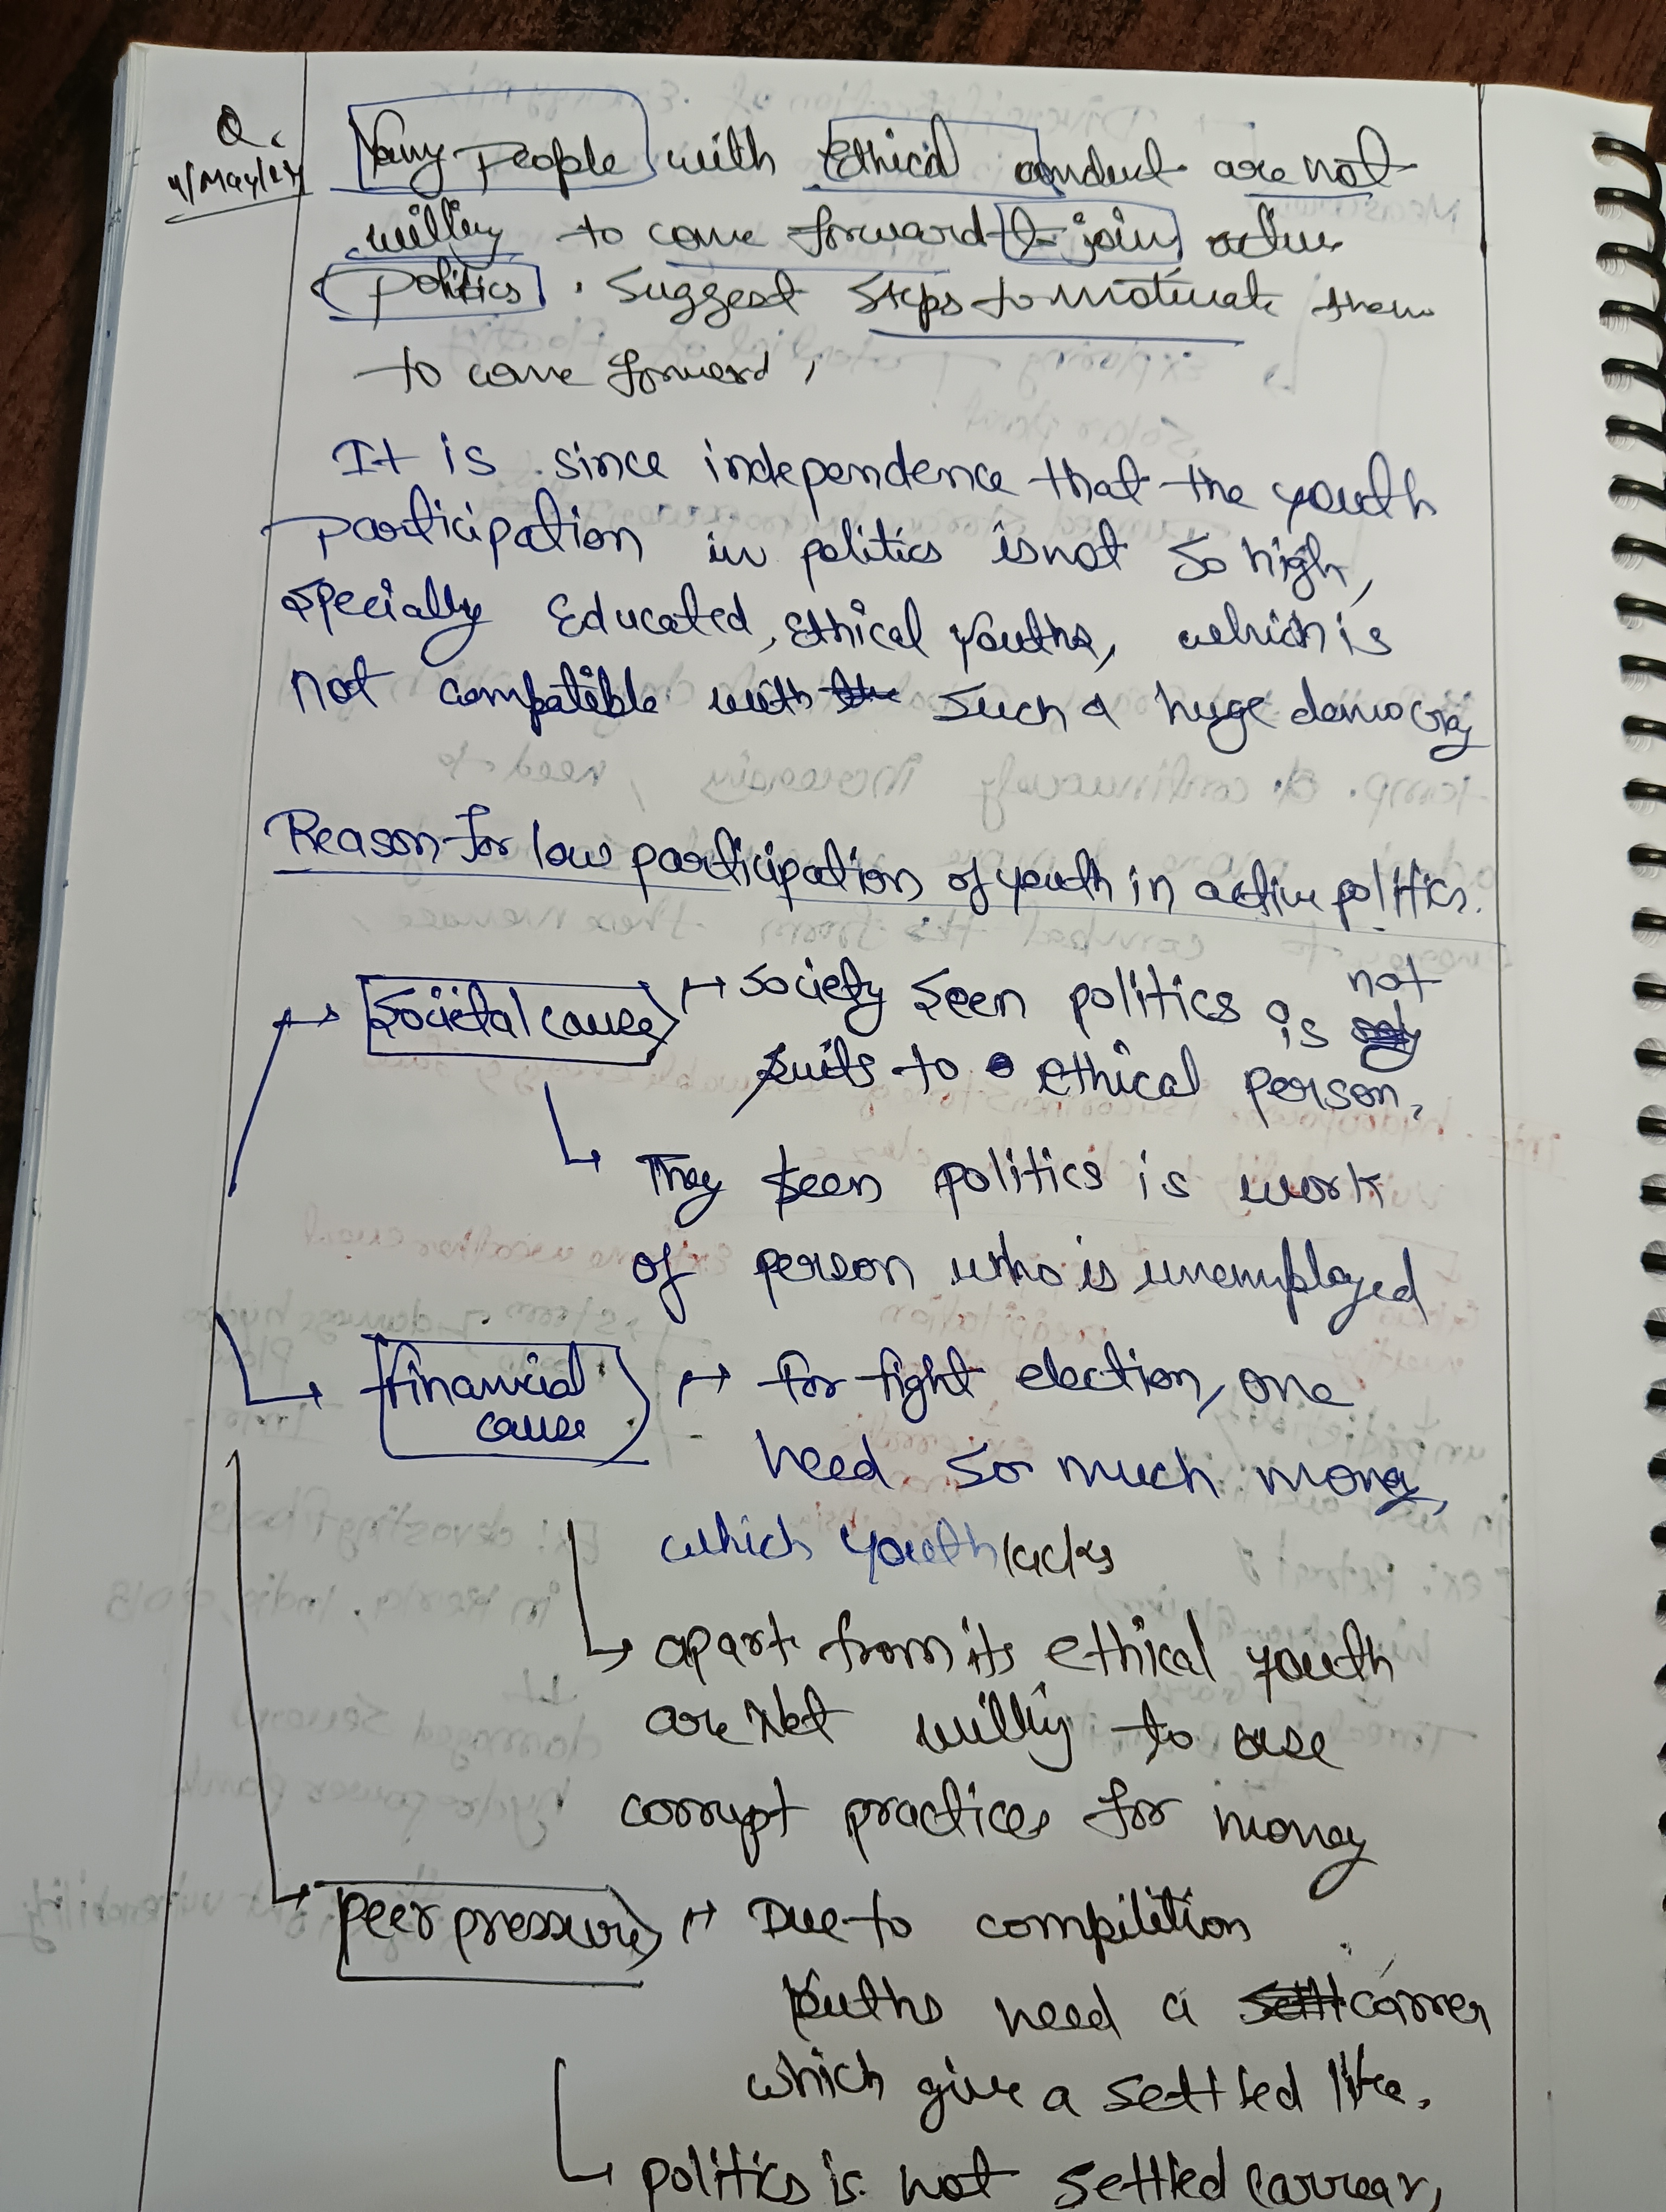 Q.
Many People with Ethical conduct are not
willing to come forward to join active
Politics. Suggest steps to motivate them
to come forward,
It is since independence that the youth
participation in politics is not so high,
specially Educated, Ethical Youths, which is
not compatible with such a huge democracy
Reason for low participation of youth in active politics.
Societal cause → Society seen politics is not
suits to ethical person,
They seen politics is work
of person who is unemployed
financial cause → for fight election, one
need so much money,
which youth lacks
apart from its ethical youth
are Not willing to use
corrupt practices for money
peer pressure → Due to compilition
Youths need a carrer
which give a settled life.
politics is not settled carrear,